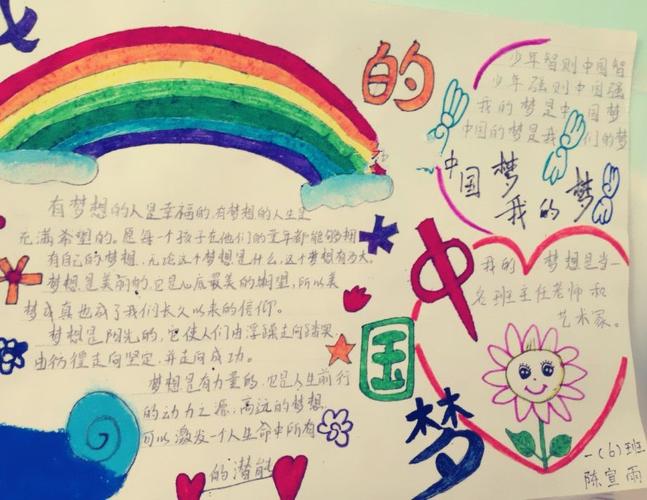 我的中国梦
少年智则中国智
少年强则中国强
我的梦是中国梦
中国的梦是我们的梦
中国梦
我的梦
有梦想的人是幸福的,有梦想的人生是
充满希望的。愿每一个孩子在他们的童年都能够拥
有自己的梦想,无论这个梦想是什么,这个梦想有多大。
梦想是美丽的,它是心底最美的期望,所以美
梦成真也成了我们长久以来的信仰。
梦想是阳光的,它使人们由浮躁走向踏实
由彷徨走向坚定,并走向成功。
梦想是有力量的,它是人生前行
的动力之源,高远的梦想
可以激发一个人生命中所有
的潜能
我的 梦想是当一
名班主任老师和
艺术家。
一(6)班
陈宣雨